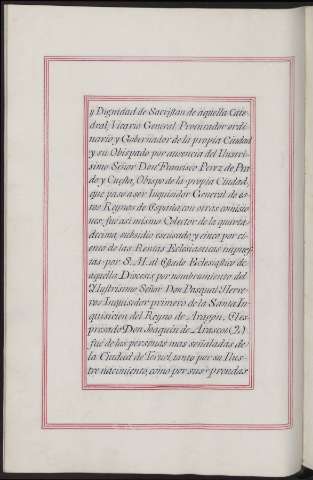 y Dignidad de Sacristan de aquella Cate-
dral, Vicario General Provisor ordi-
nario y Gobernador de la propia Ciudad
y su Obispado por ausencia del Ilustri-
simo Señor Don Francisco Perz. de Pra-
do y Cuesta, Obispo de la propia Ciudad,
que paso a ser Inquisidor General de es-
tos Reynos de España, con otras comisio-
nes, fue asimismo Colector de la quarta
decima, subsidio escusado, y cinco por ci-
ento de las Rentas Eclesiasticas impues-
tas por S. M. al Estado Eclesiastico de
aquella Diocesis, por nombramiento del
Illustrisimo Señor Don Pasqual Herre-
ros Inquisidor primero de la Santa In-
quisicion del Reyno de Aragon. El es-
presado Don Joaquin de Arascot
fue de las personas mas señaladas de
la Ciudad de Teruel, tanto por su Ilus-
tre nacimiento, como por sus prendas